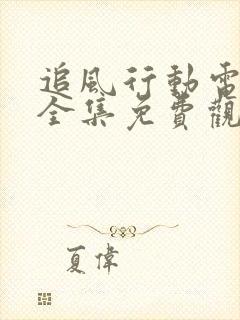 追風行動電
全集免費觀
夏偉